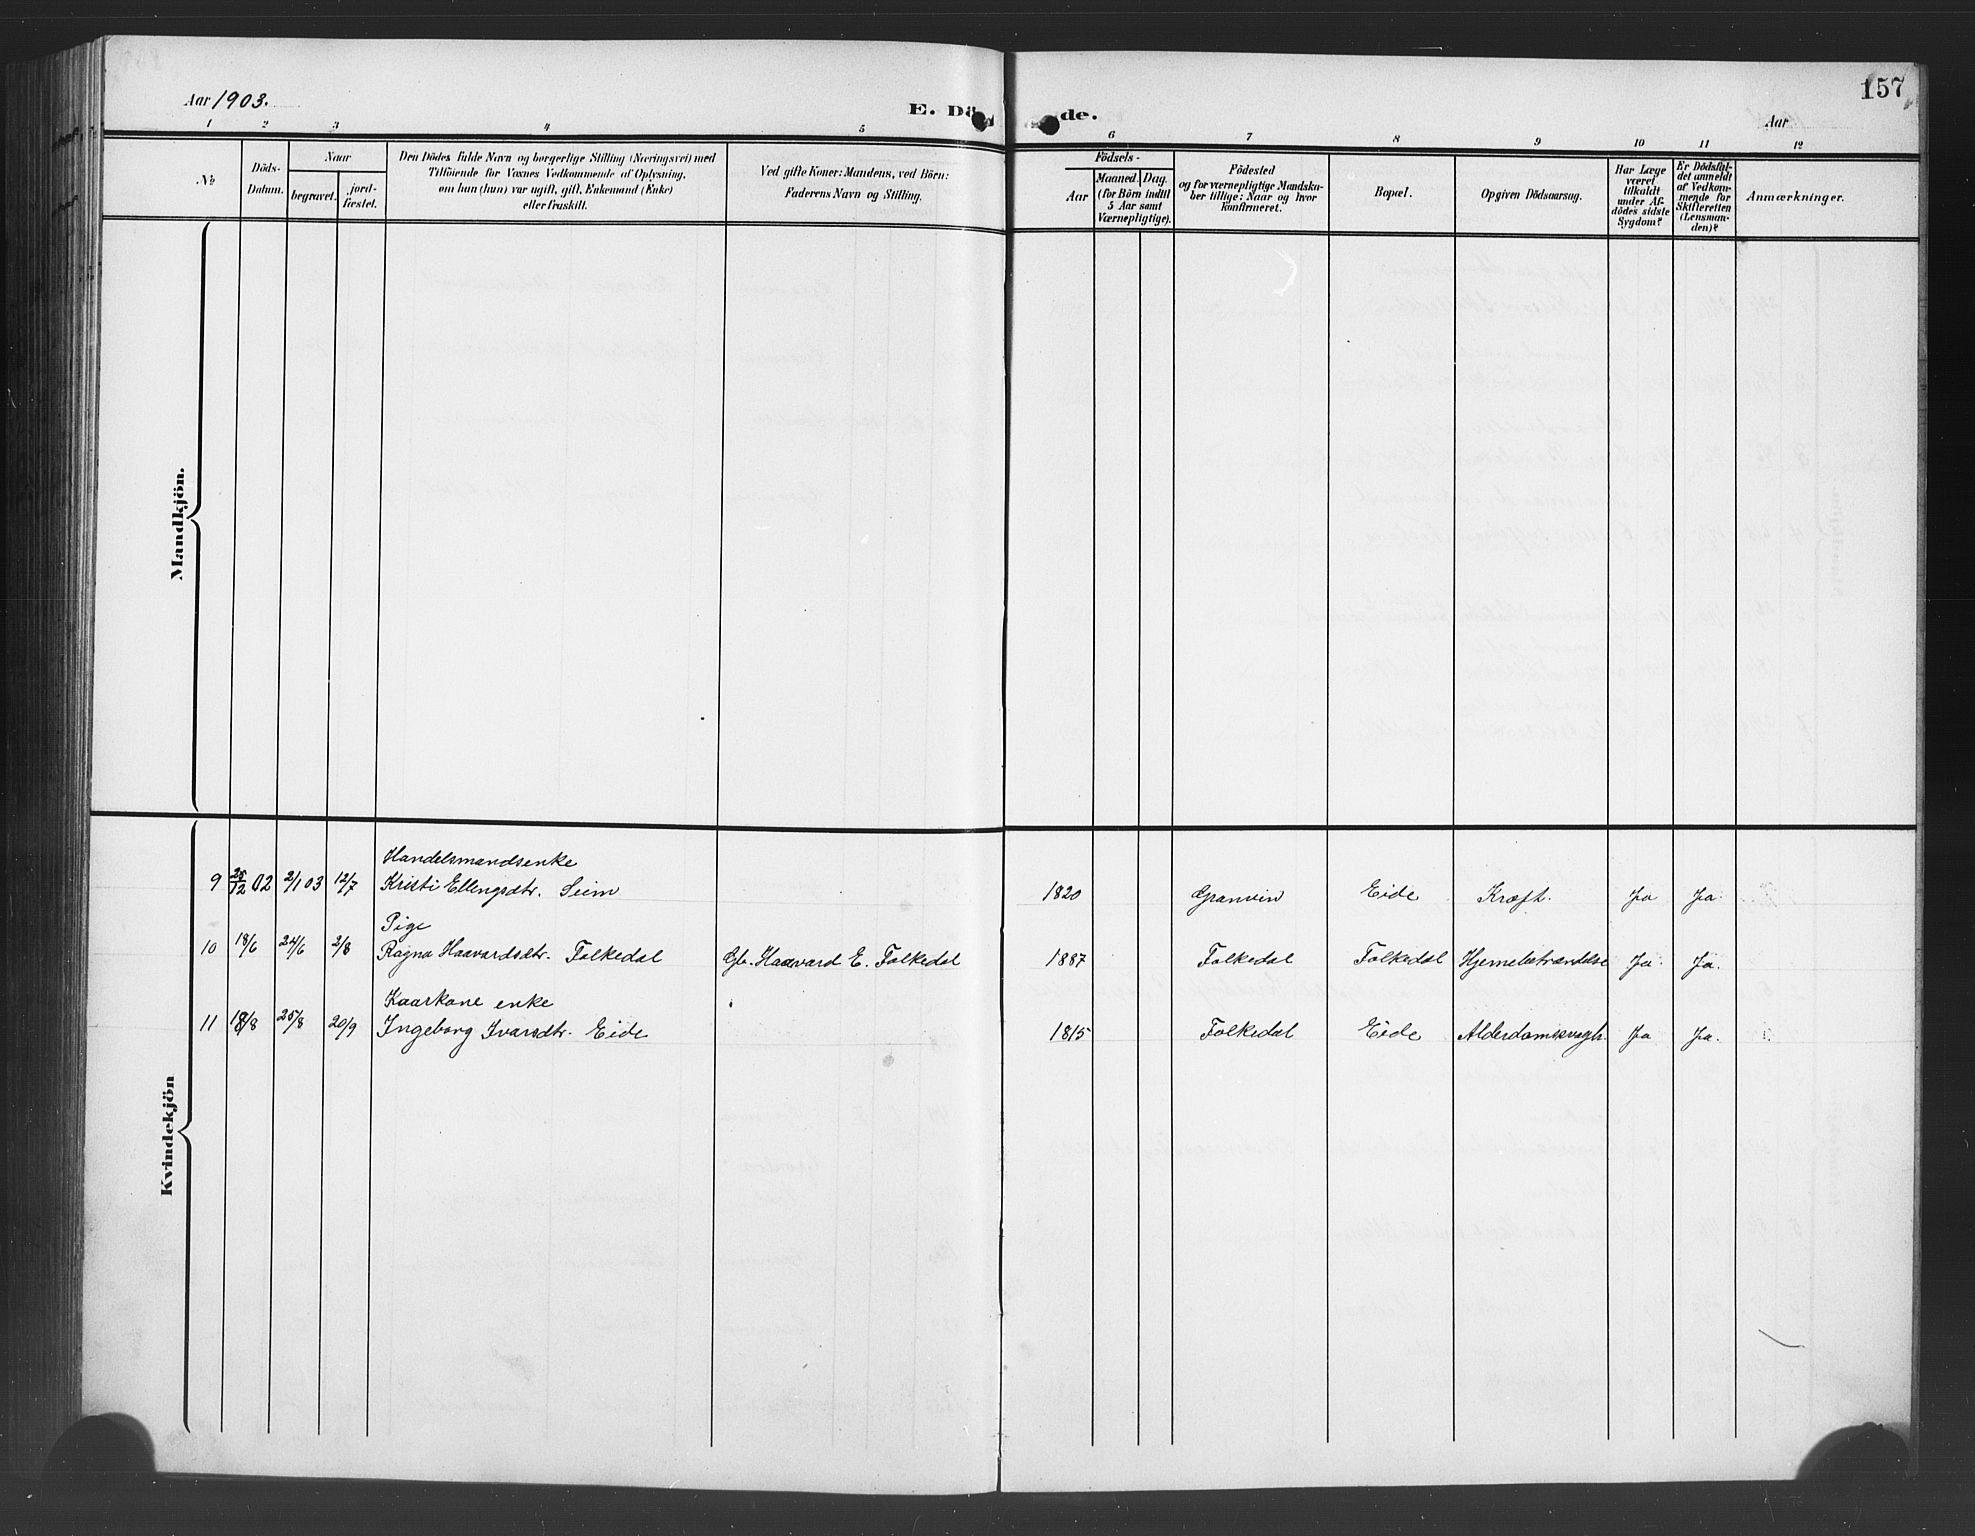 157
Aar 1903.
E. Dö de.
Aar
1 2 3 4 5 6 7 8 9 10 11 12
№
Döds-
Datum.
Naar
begravet.
jord-
fæstet.
Den Dödes fulde Navn og borgerlige Stilling (Næringsvei) med
Tilföiende for Voxnes Vedkommende af Oplysning,
om hun (hun) var ugift, gift, Enkemand (Enke)
eller fraskilt.
Ved gifte Koner: Mandens, ved Börn:
Faderens Navn og Stilling.
Födsels-
Aar
Maaned. Dag.
(for Börn indtil
5 Aar samt
Værnepligtige).
Födested
og for værnepligtige Mandska-
ber tillige: Naar og hvor
konfirmeret.
Bopæl.
Opgiven Dödsaarsag.
Har Læge
været
tilkaldt
under Af-
dödes sidste
Sygdom?
Er Dödsfal-
det anmeldt
af Vedkom-
mende for
Skifteretten
(Lensman-
den)?
Anmærkninger.
Mandkjön.
Kvindekjön
Handelsmandsenke
9 25/12 02 2/1 03 12/7 Kristi Ellengsdtr. Seim 1820 Granvin Eide Kræft. Ja Ja.
Pige
10 18/6 24/6 2/8 Ragna Haavardsdtr. Folkedal Gb. Haavard E. Folkedal 1887 Folkedal Folkedal Hjernebetændelse Ja. Ja.
Kaarkone enke
11 18/8 25/8 20/9 Ingeborg Ivarsdtr. Eide 1815 Folkedal Eide Alderdomssvagh. Ja Ja.